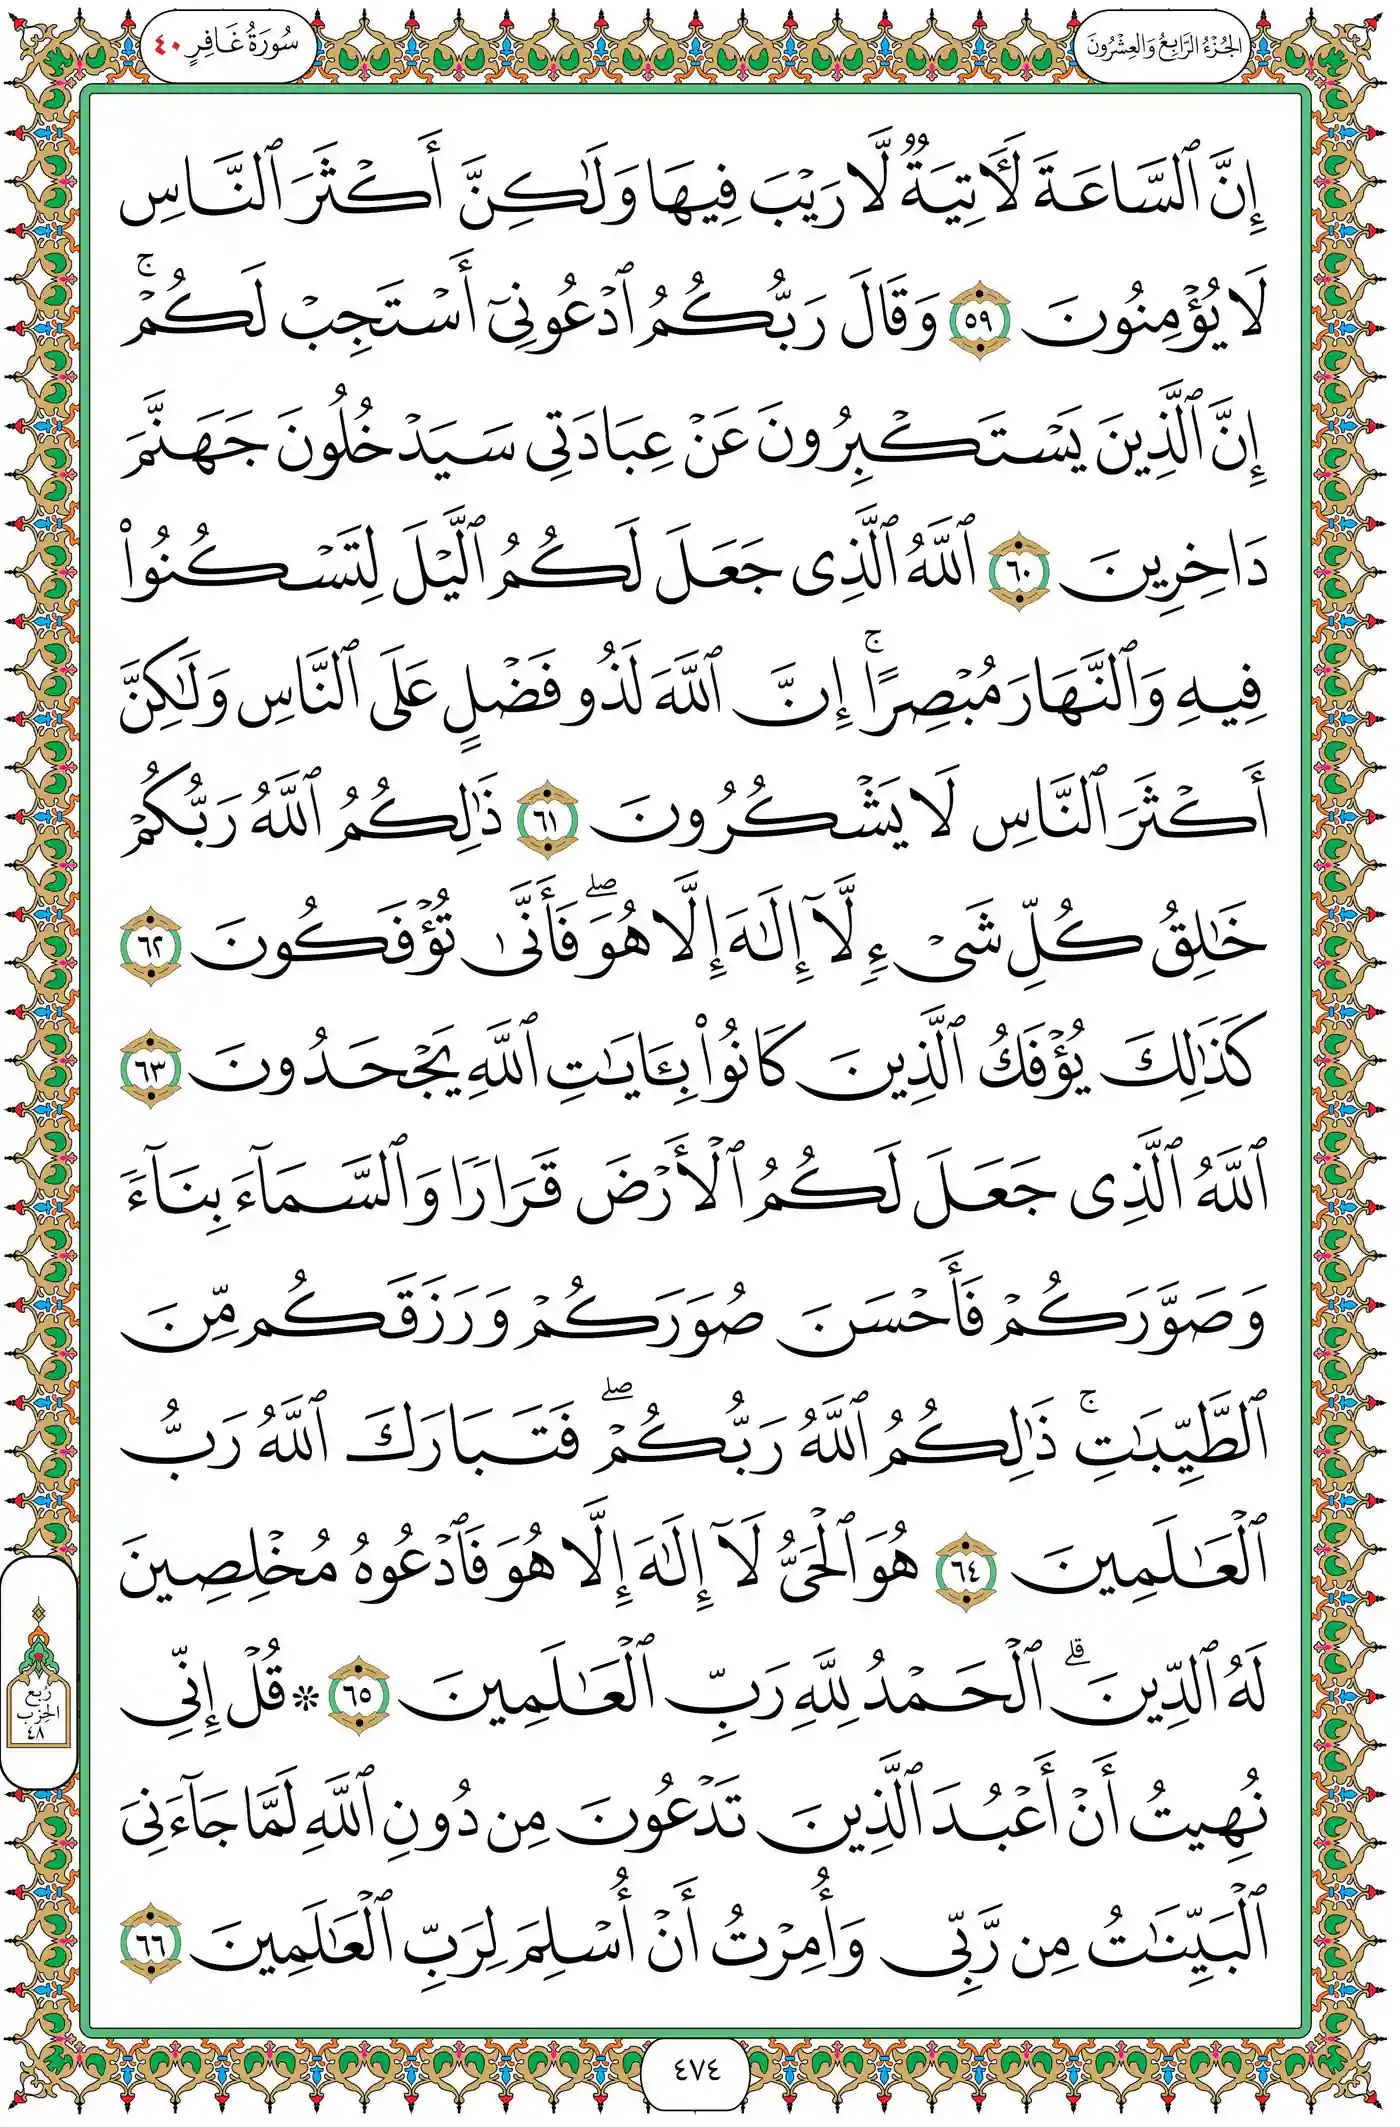 الجُزْءُ الرَّابِعُ وَالعِشْرُونَ
سُورَةُ غَافِرٍ ٤٠
إِنَّ ٱلسَّاعَةَ لَأٓتِيَةٞ لَّا رَيۡبَ فِيهَا وَلَٰكِنَّ أَكۡثَرَ ٱلنَّاسِ
لَا يُؤۡمِنُونَ ٥٩ وَقَالَ رَبُّكُمُ ٱدۡعُونِيٓ أَسۡتَجِبۡ لَكُمۡۚ
إِنَّ ٱلَّذِينَ يَسۡتَكۡبِرُونَ عَنۡ عِبَادَتِي سَيَدۡخُلُونَ جَهَنَّمَ
دَاخِرِينَ ٦٠ ٱللَّهُ ٱلَّذِي جَعَلَ لَكُمُ ٱلَّيۡلَ لِتَسۡكُنُواْ
فِيهِ وَٱلنَّهَارَ مُبۡصِرًاۚ إِنَّ ٱللَّهَ لَذُو فَضۡلٍ عَلَى ٱلنَّاسِ وَلَٰكِنَّ
أَكۡثَرَ ٱلنَّاسِ لَا يَشۡكُرُونَ ٦١ ذَٰلِكُمُ ٱللَّهُ رَبُّكُمۡ
خَٰلِقُ كُلِّ شَيۡءٖ لَّآ إِلَٰهَ إِلَّا هُوَۖ فَأَنَّىٰ تُؤۡفَكُونَ ٦٢
كَذَٰلِكَ يُؤۡفَكُ ٱلَّذِينَ كَانُواْ بِـَٔايَٰتِ ٱللَّهِ يَجۡحَدُونَ ٦٣
ٱللَّهُ ٱلَّذِي جَعَلَ لَكُمُ ٱلۡأَرۡضَ قَرَارٗا وَٱلسَّمَآءَ بِنَآءٗ
وَصَوَّرَكُمۡ فَأَحۡسَنَ صُوَرَكُمۡ وَرَزَقَكُم مِّنَ
ٱلطَّيِّبَٰتِۚ ذَٰلِكُمُ ٱللَّهُ رَبُّكُمۡۖ فَتَبَارَكَ ٱللَّهُ رَبُّ
ٱلۡعَٰلَمِينَ ٦٤ هُوَ ٱلۡحَيُّ لَآ إِلَٰهَ إِلَّا هُوَ فَٱدۡعُوهُ مُخۡلِصِينَ
لَهُ ٱلدِّينَۗ ٱلۡحَمۡدُ لِلَّهِ رَبِّ ٱلۡعَٰلَمِينَ ٦٥ ۞ قُلۡ إِنِّي
نُهِيتُ أَنۡ أَعۡبُدَ ٱلَّذِينَ تَدۡعُونَ مِن دُونِ ٱللَّهِ لَمَّا جَآءَنِيَ
ٱلۡبَيِّنَٰتُ مِن رَّبِّي وَأُمِرۡتُ أَنۡ أُسۡلِمَ لِرَبِّ ٱلۡعَٰلَمِينَ ٦٦
رُبع
الحِزب
٤٨
٤٧٤